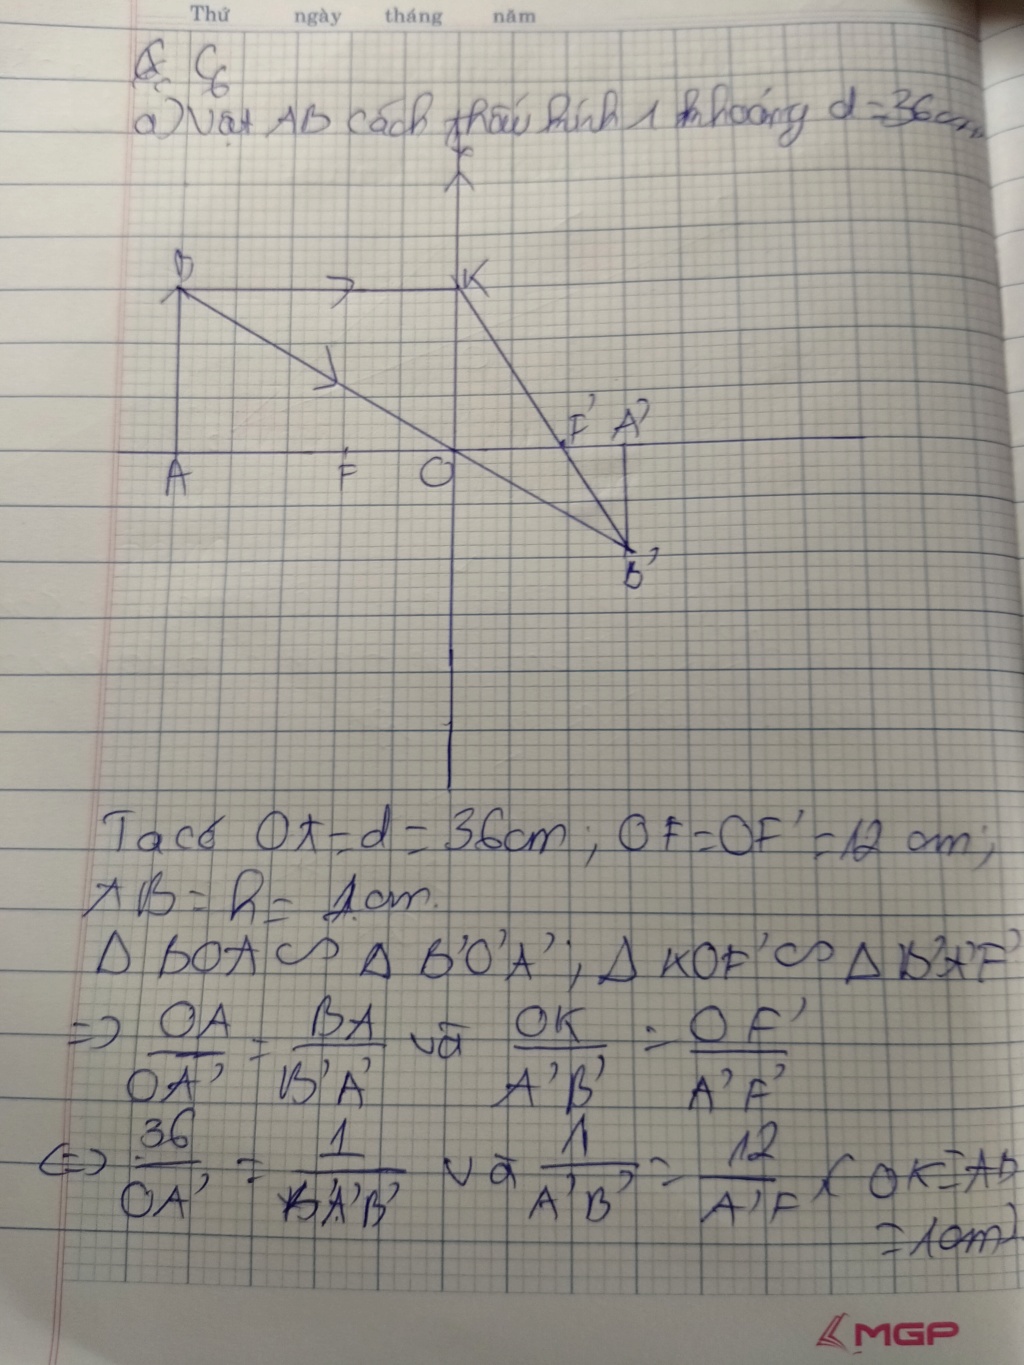 Thứ ngày tháng năm
C6
a) Vật AB cách thấu kính 1 khoảng d = 36cm
B K
F' A'
A F O
B'
Ta có OA = d = 36cm; OF = OF' = 12 cm;
AB = h = 1cm.
Δ BOA ∽ Δ B'O'A'; Δ KOF' ∽ Δ B'A'F'
=> OA/OA' = BA/B'A' và OK/A'B' = OF'/A'F'
<=> 36/OA' = 1/A'B' và 1/A'B' = 12/A'F' (OK = AB
= 1cm)
MGP